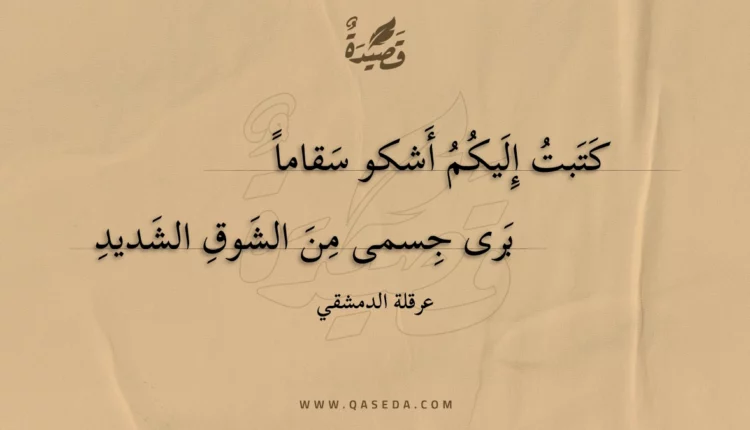 قَصِيدَةٌ
كَتَبتُ إِلَيكُمُ أَشكو سَقاماً
بَرى جِسمى مِنَ الشَوقِ الشَديدِ
عرقلة الدمشقي
WWW.QASEDA.COM